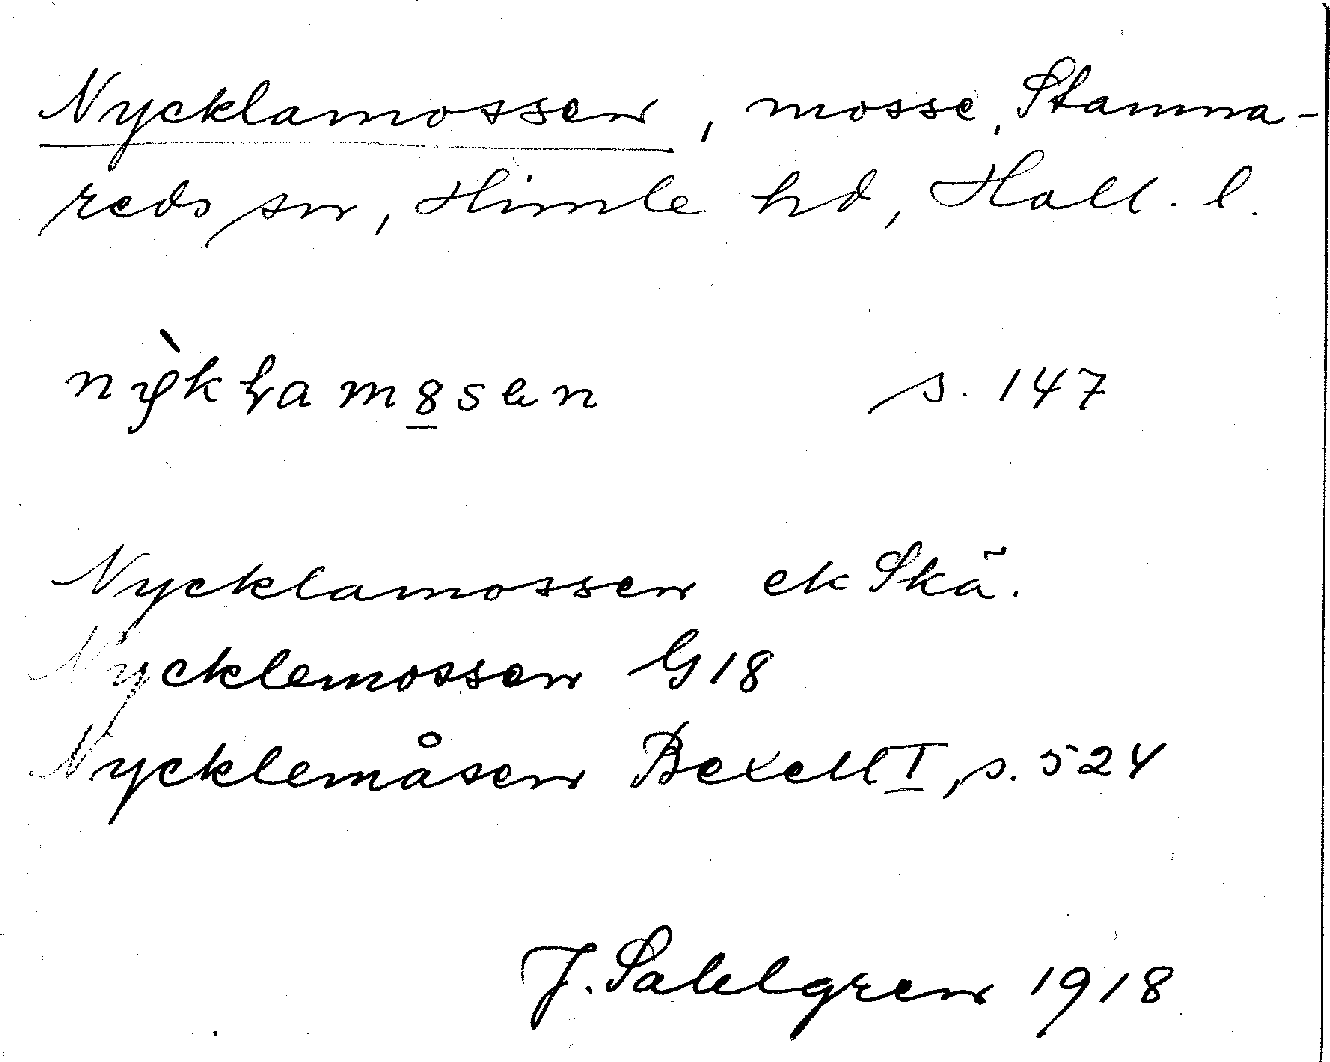 Nycklamossen, mosse, Stamna-
reds sn, Himle hd, Hall. l.
s. 147
Nycklamossen ek Skä.
Nycklemossen G18
Nycklemåsen Bexell I, s. 524
J. Sahlgren 1918